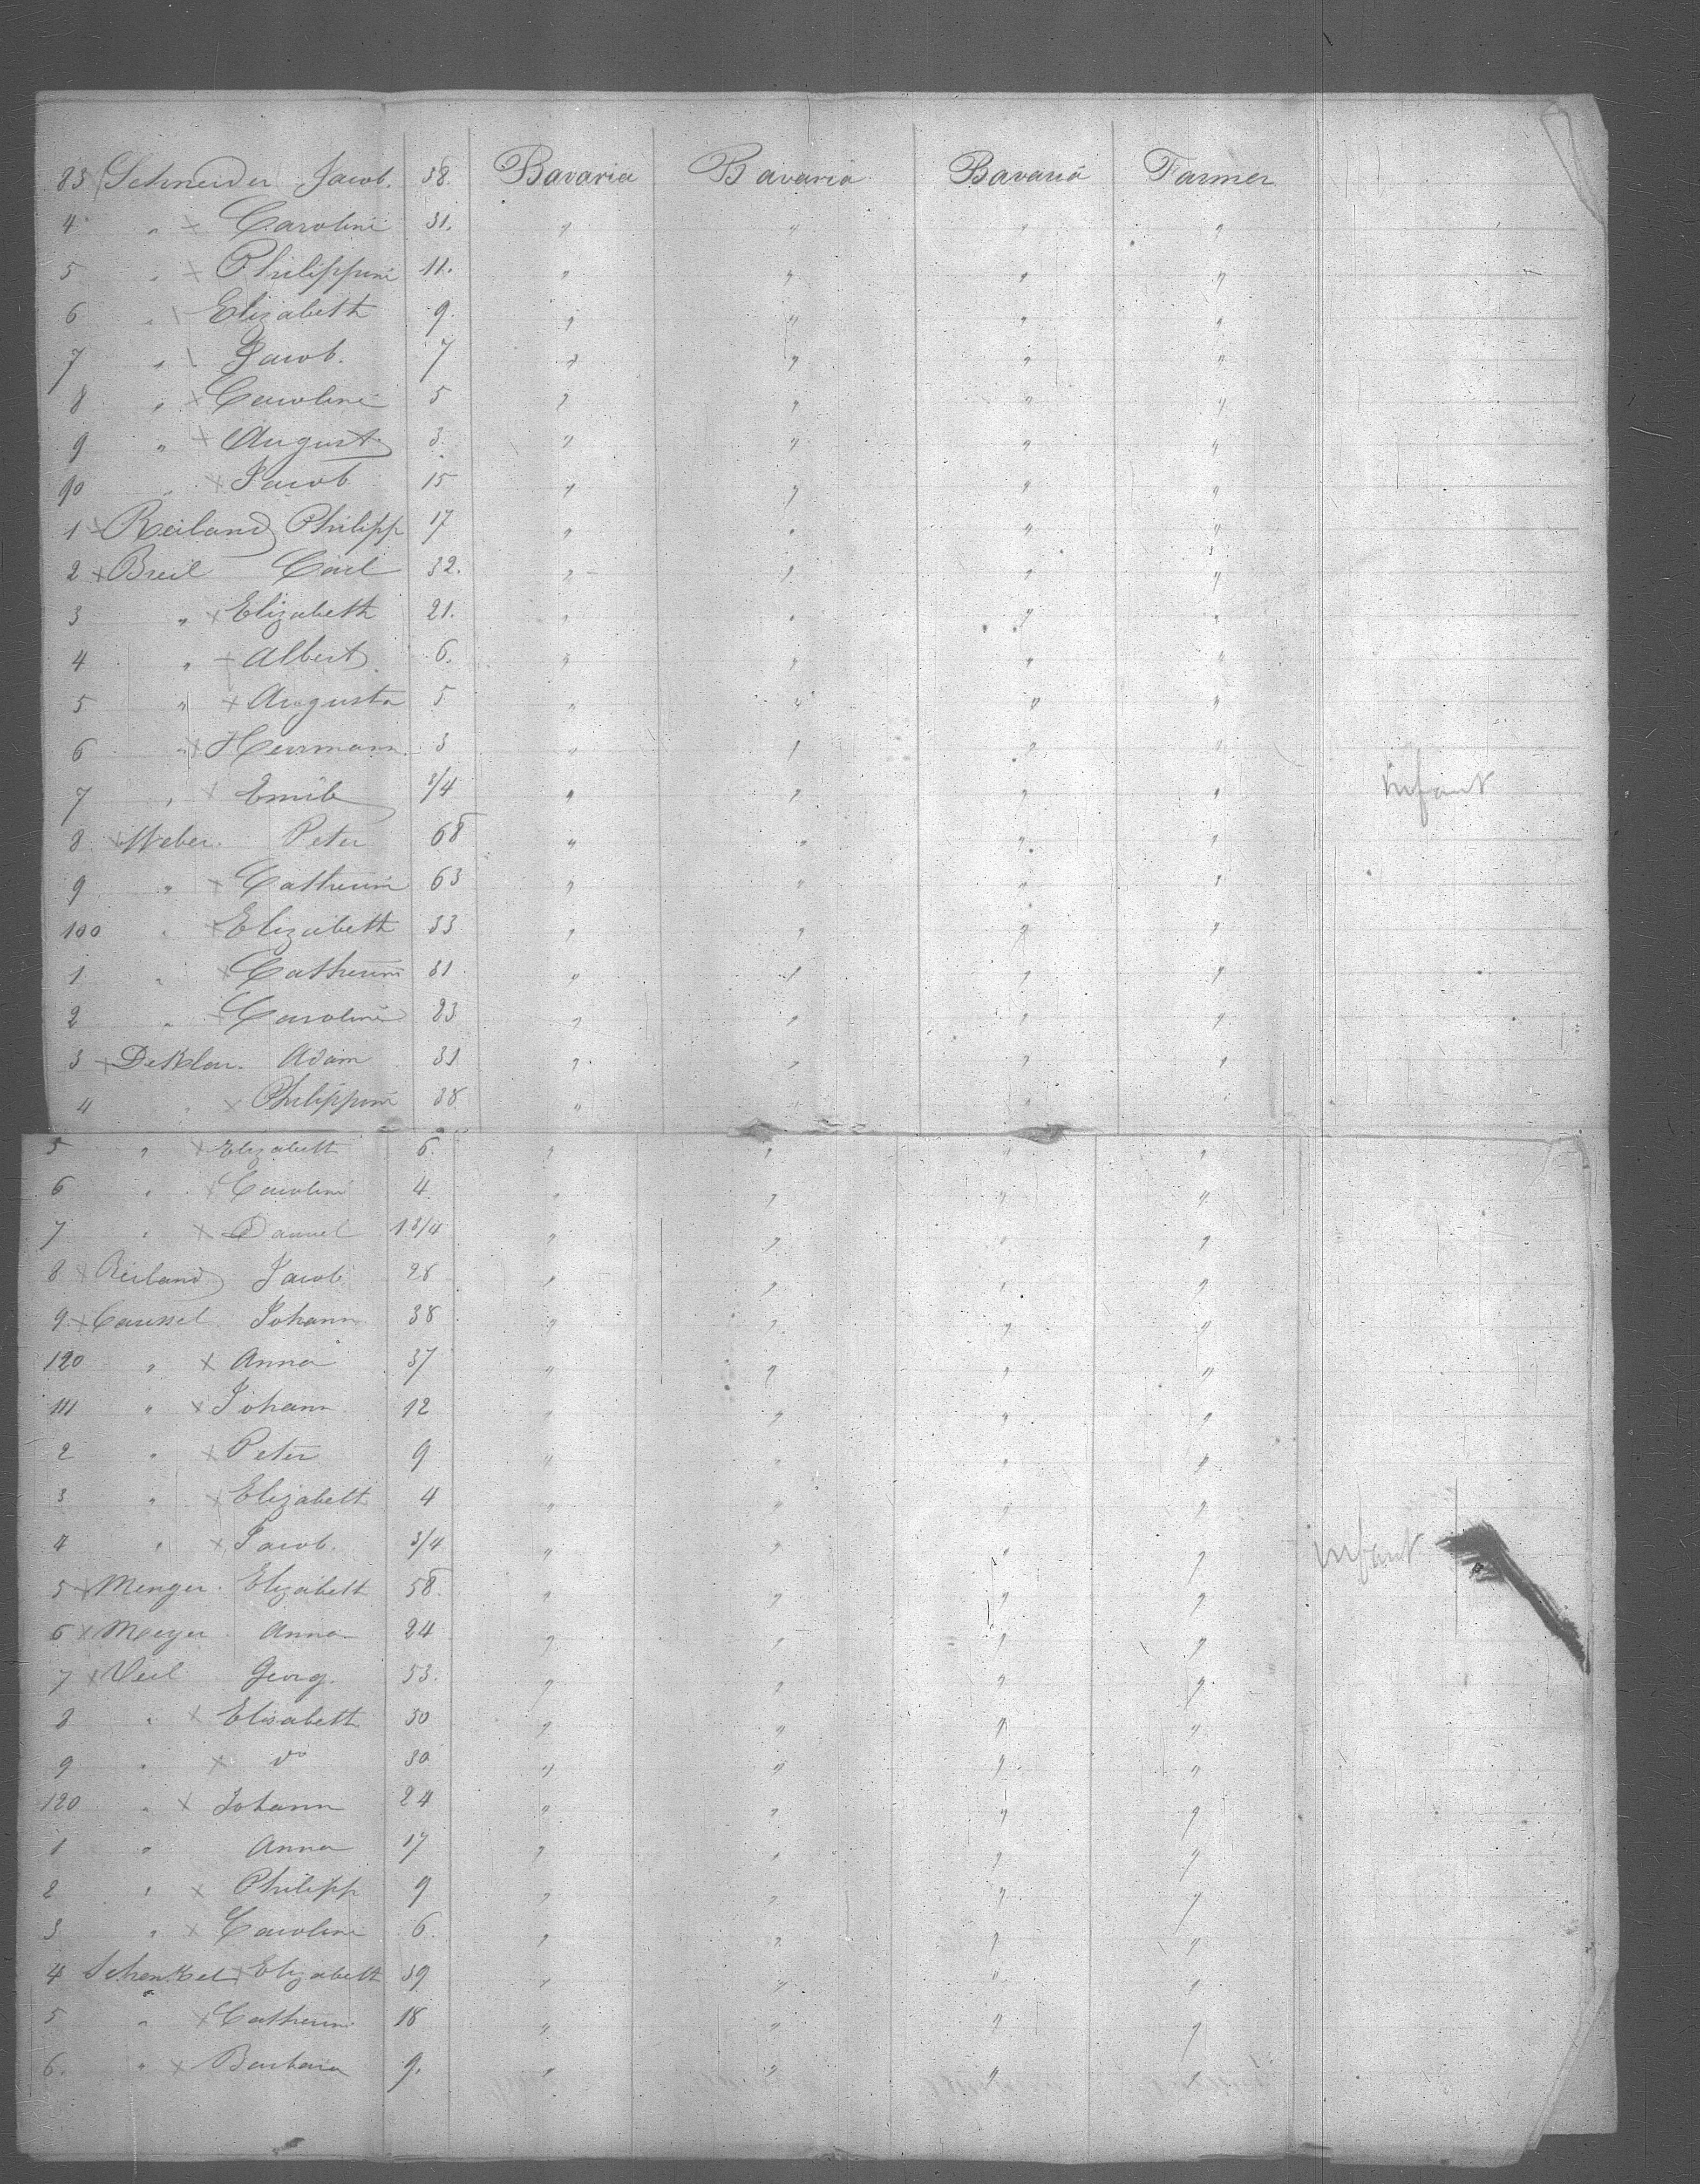 83 Schneider Jacob. 38. Bavaria Bavaria Bavaria Farmer
4 " × Caroline 31. " " " "
5 " × Philippine 11. " " " "
6 " Elizabeth 9. " " " "
7 " Jacob. 7 " " " "
8 " × Caroline 5 " " " "
9 " × August 3. " " " "
90 " × Jacob 15 " " " "
1 × Reiland Philipp 17 " " " "
2 × Breil Carl 32. " " " "
3 " × Elizabeth 21. " " " "
4 " × Albert 6. " " " "
5 " × Augusta 5 " " " "
6 " × Herrmann 3 " " " "
7 " × Emile 3/4 " " " " Infant
8 × Weber. Peter 68 " " " "
9 " × Catherine 63 " " " "
100 " × Elizabeth 33 " " " "
1 " × Catherine 31 " " " "
2 " × Caroline 23 " " " "
3 × Adam 31 " " " "
4 " × Philippine 38 " " " "
5 " × Elizabeth 6. " " " "
6 " × Caroline 4 " " " "
7 " × Daniel 1 3/4 " " " "
8 × Reiland Jacob 28 " " " "
9 × Johann 38 " " " "
120 " × Anna 37 " " " "
111 " × Johann 12 " " " "
2 " × Peter 9 " " " "
3 " × Elizabeth 4 " " " "
4 " × Jacob. 3/4 " " " " Infant
5 × Menger. Elizabeth 58. " " " "
6 × Meyer Anna 24 " " " "
7 × Veil Georg. 53. " " " "
8 " × Elisabeth 50 " " " "
9 " × do 30 " " " "
120 " × Johann 24 " " " "
1 " Anna 17 " " " "
2 " × Philipp 9 " " " "
3 " × Caroline 6. " " " "
4 Schenkel × Elizabeth 39 " " " "
5 " × Catherine 18 " " " "
6. " × Barbara 9. " " " "